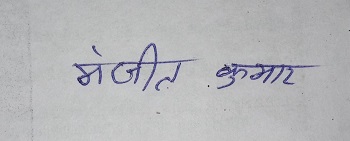 मंजीत कुमार